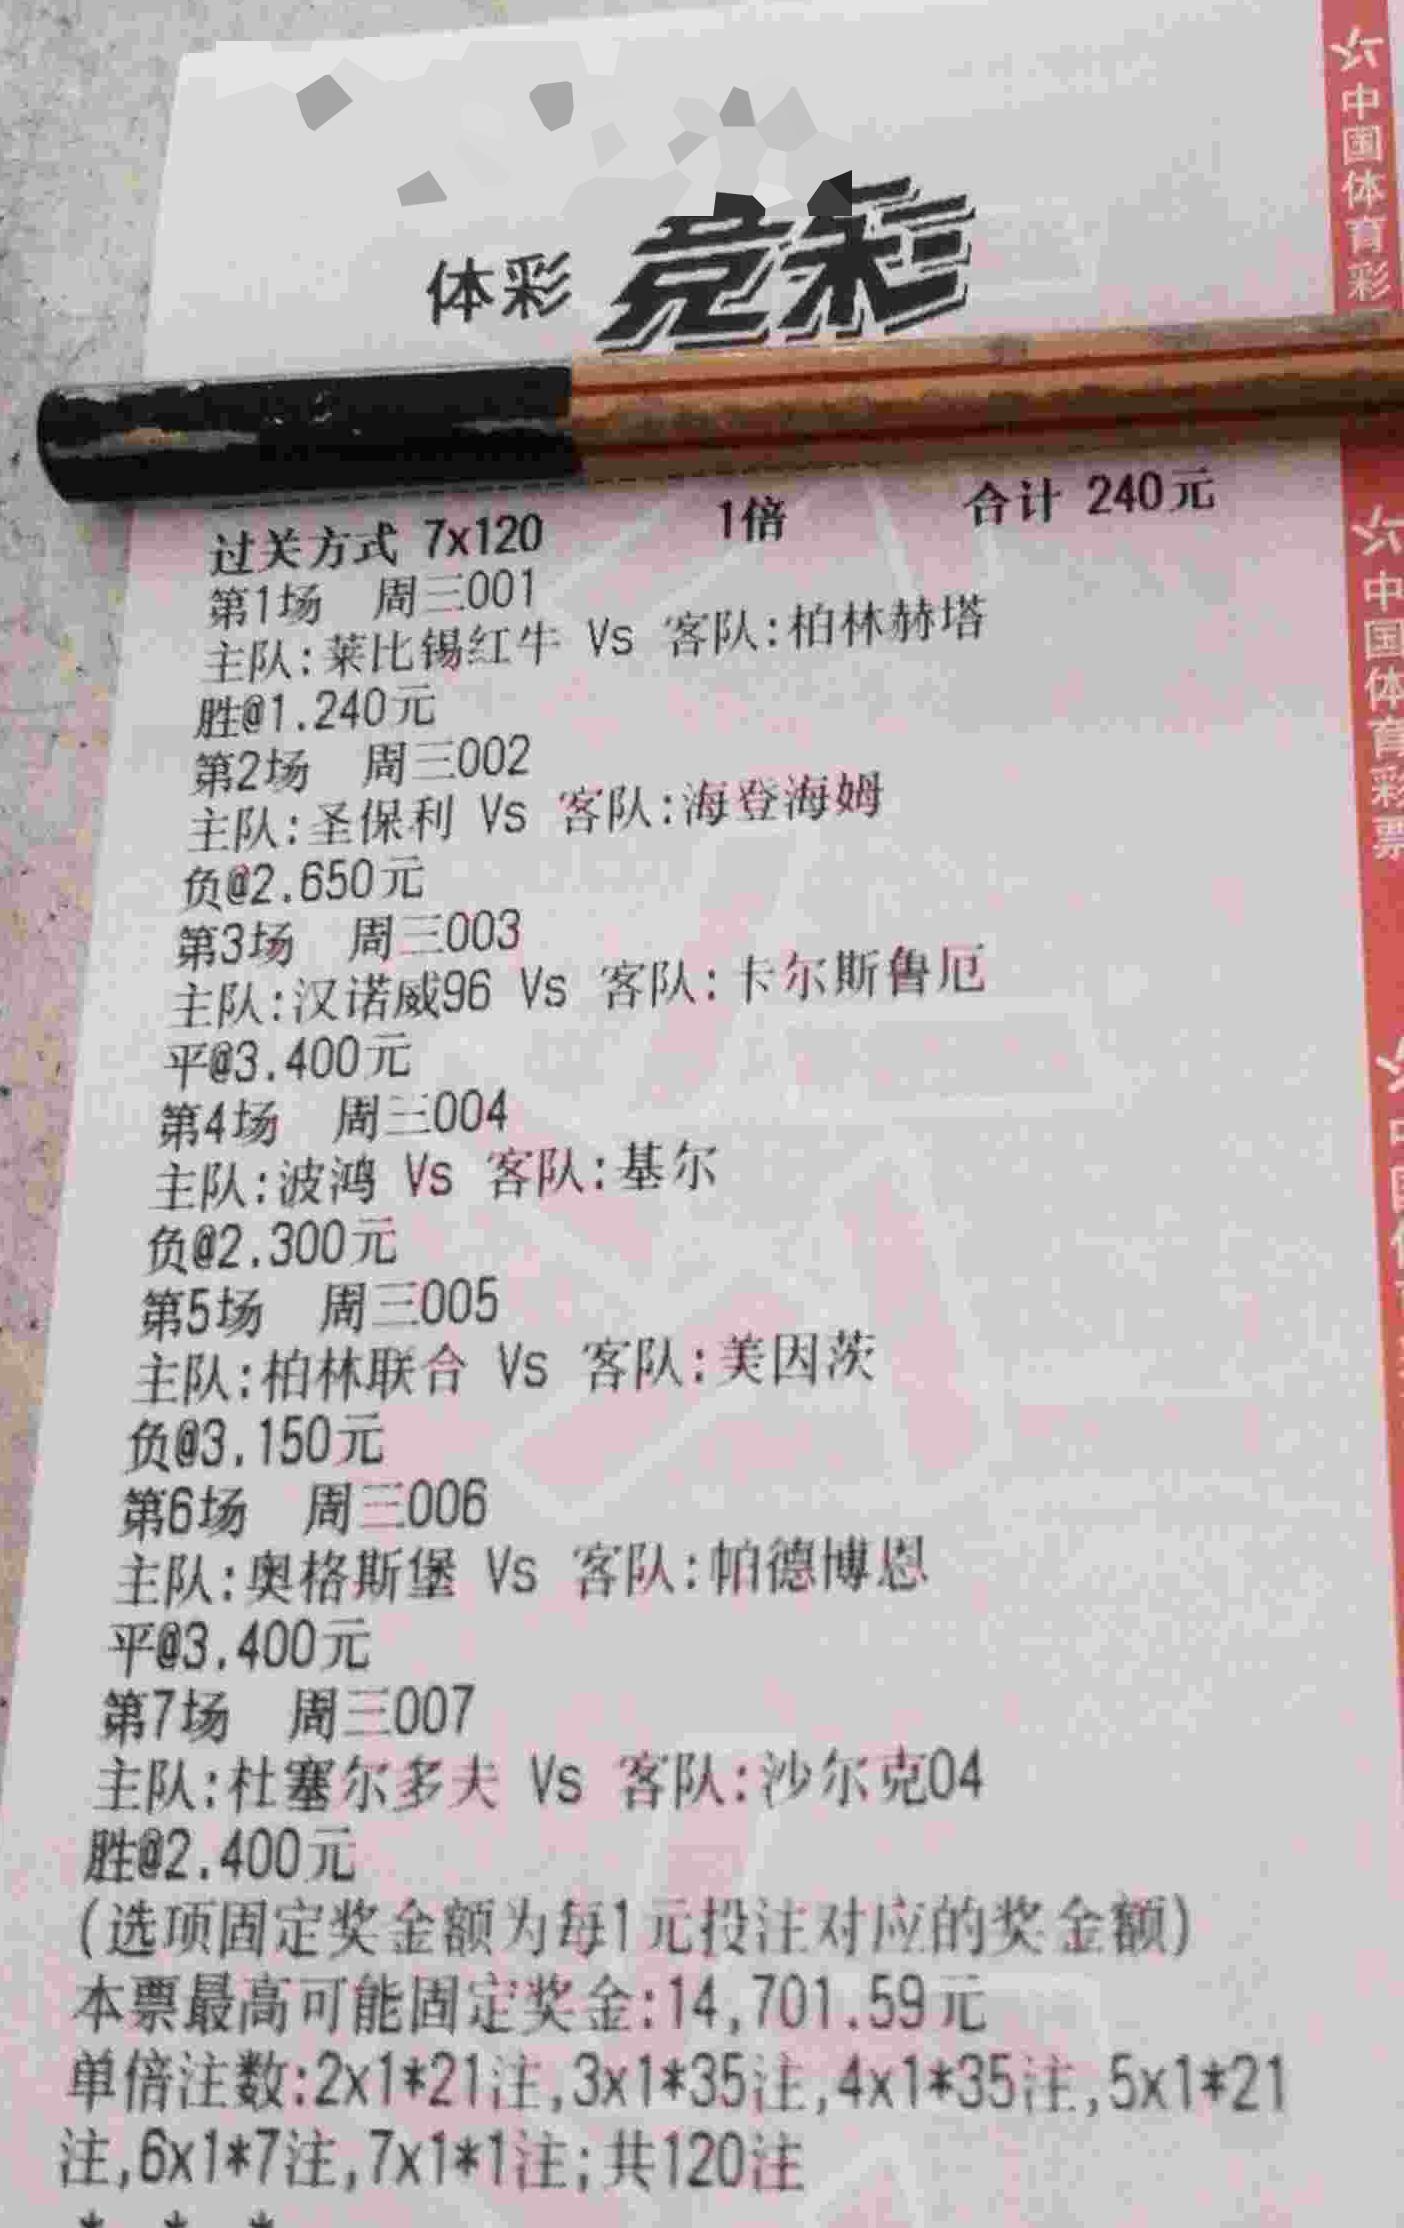 体彩 竞彩
过关方式 7x120 1倍 合计 240元
第1场 周三001
主队:莱比锡红牛 Vs 客队:柏林赫塔
胜@1.240元
第2场 周三002
主队:圣保利 Vs 客队:海登海姆
负@2.650元
第3场 周三003
主队:汉诺威96 Vs 客队:卡尔斯鲁厄
平@3.400元
第4场 周三004
主队:波鸿 Vs 客队:基尔
负@2.300元
第5场 周三005
主队:柏林联合 Vs 客队:美因茨
负@3.150元
第6场 周三006
主队:奥格斯堡 Vs 客队:帕德博恩
平@3.400元
第7场 周三007
主队:杜塞尔多夫 Vs 客队:沙尔克04
胜@2.400元
(选项固定奖金额为每1元投注对应的奖金额)
本票最高可能固定奖金:14,701.59元
单倍注数:2x1*21注,3x1*35注,4x1*35注,5x1*21
注,6x1*7注,7x1*1注;共120注
* * *
中国体育彩
中国体育彩票